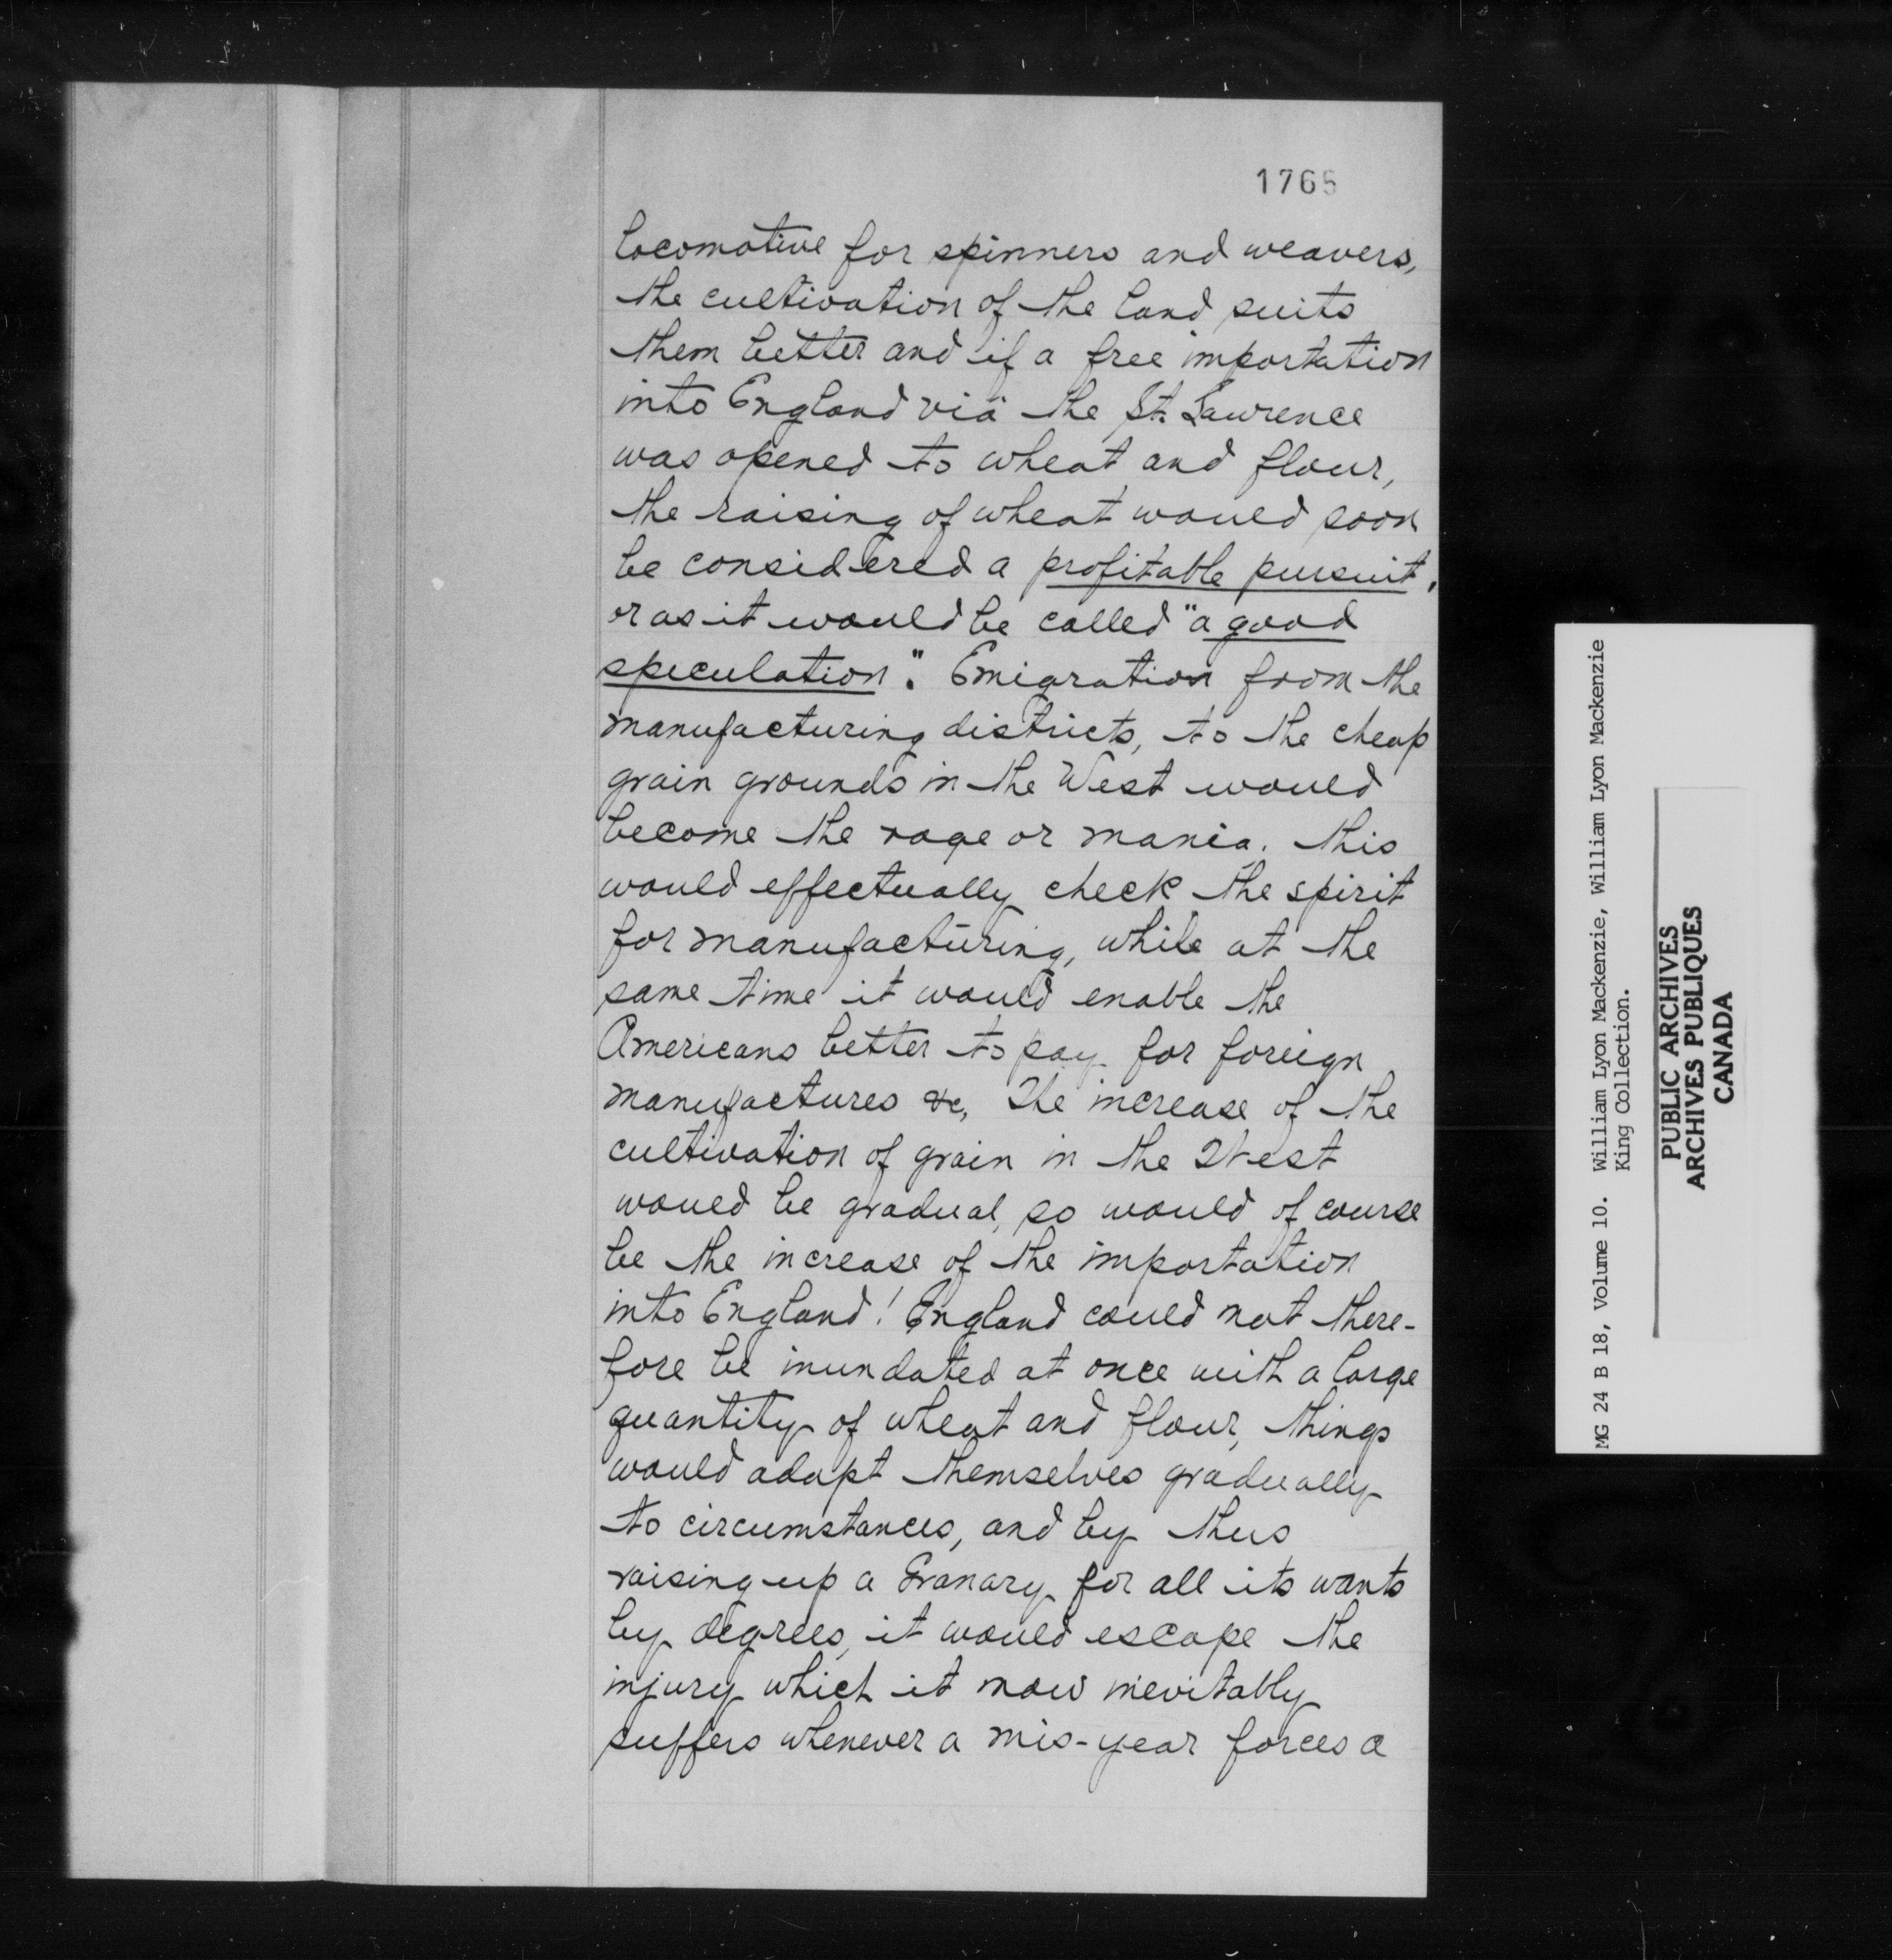 1765
locomotive for spinners and weavers,
the cultivation of the land suits
them better and if a free importation
into England viâ the St. Lawrence
was opened to wheat and flour,
the raising of wheat would soon
be considered a profitable pursuit,
or as it would be called "a good
speculation". Emigration from the
manufacturing districts, to the cheap
grain grounds in the West would
become the rage or mania. this
would effectually check the spirit
for manufacturing, while at the
same time it would enable the
Americans better to pay for foreign
manufactures &c, The increase of the
cultivation of grain in the West
would be gradual, so would of course
be the increase of the importation
into England! England could not there-
fore be inundated at once with a large
quantity of wheat and flour, things
would adapt themselves gradually
to circumstances, and by thus
raising up a Granary for all its wants
by degrees, it would escape the
injury which it now inevitably
suffers whenever a mis-year forces a
MG 24 B 18, Volume 10. William Lyon Mackenzie, William Lyon Mackenzie
King Collection.
PUBLIC ARCHIVES
ARCHIVES PUBLIQUES
CANADA